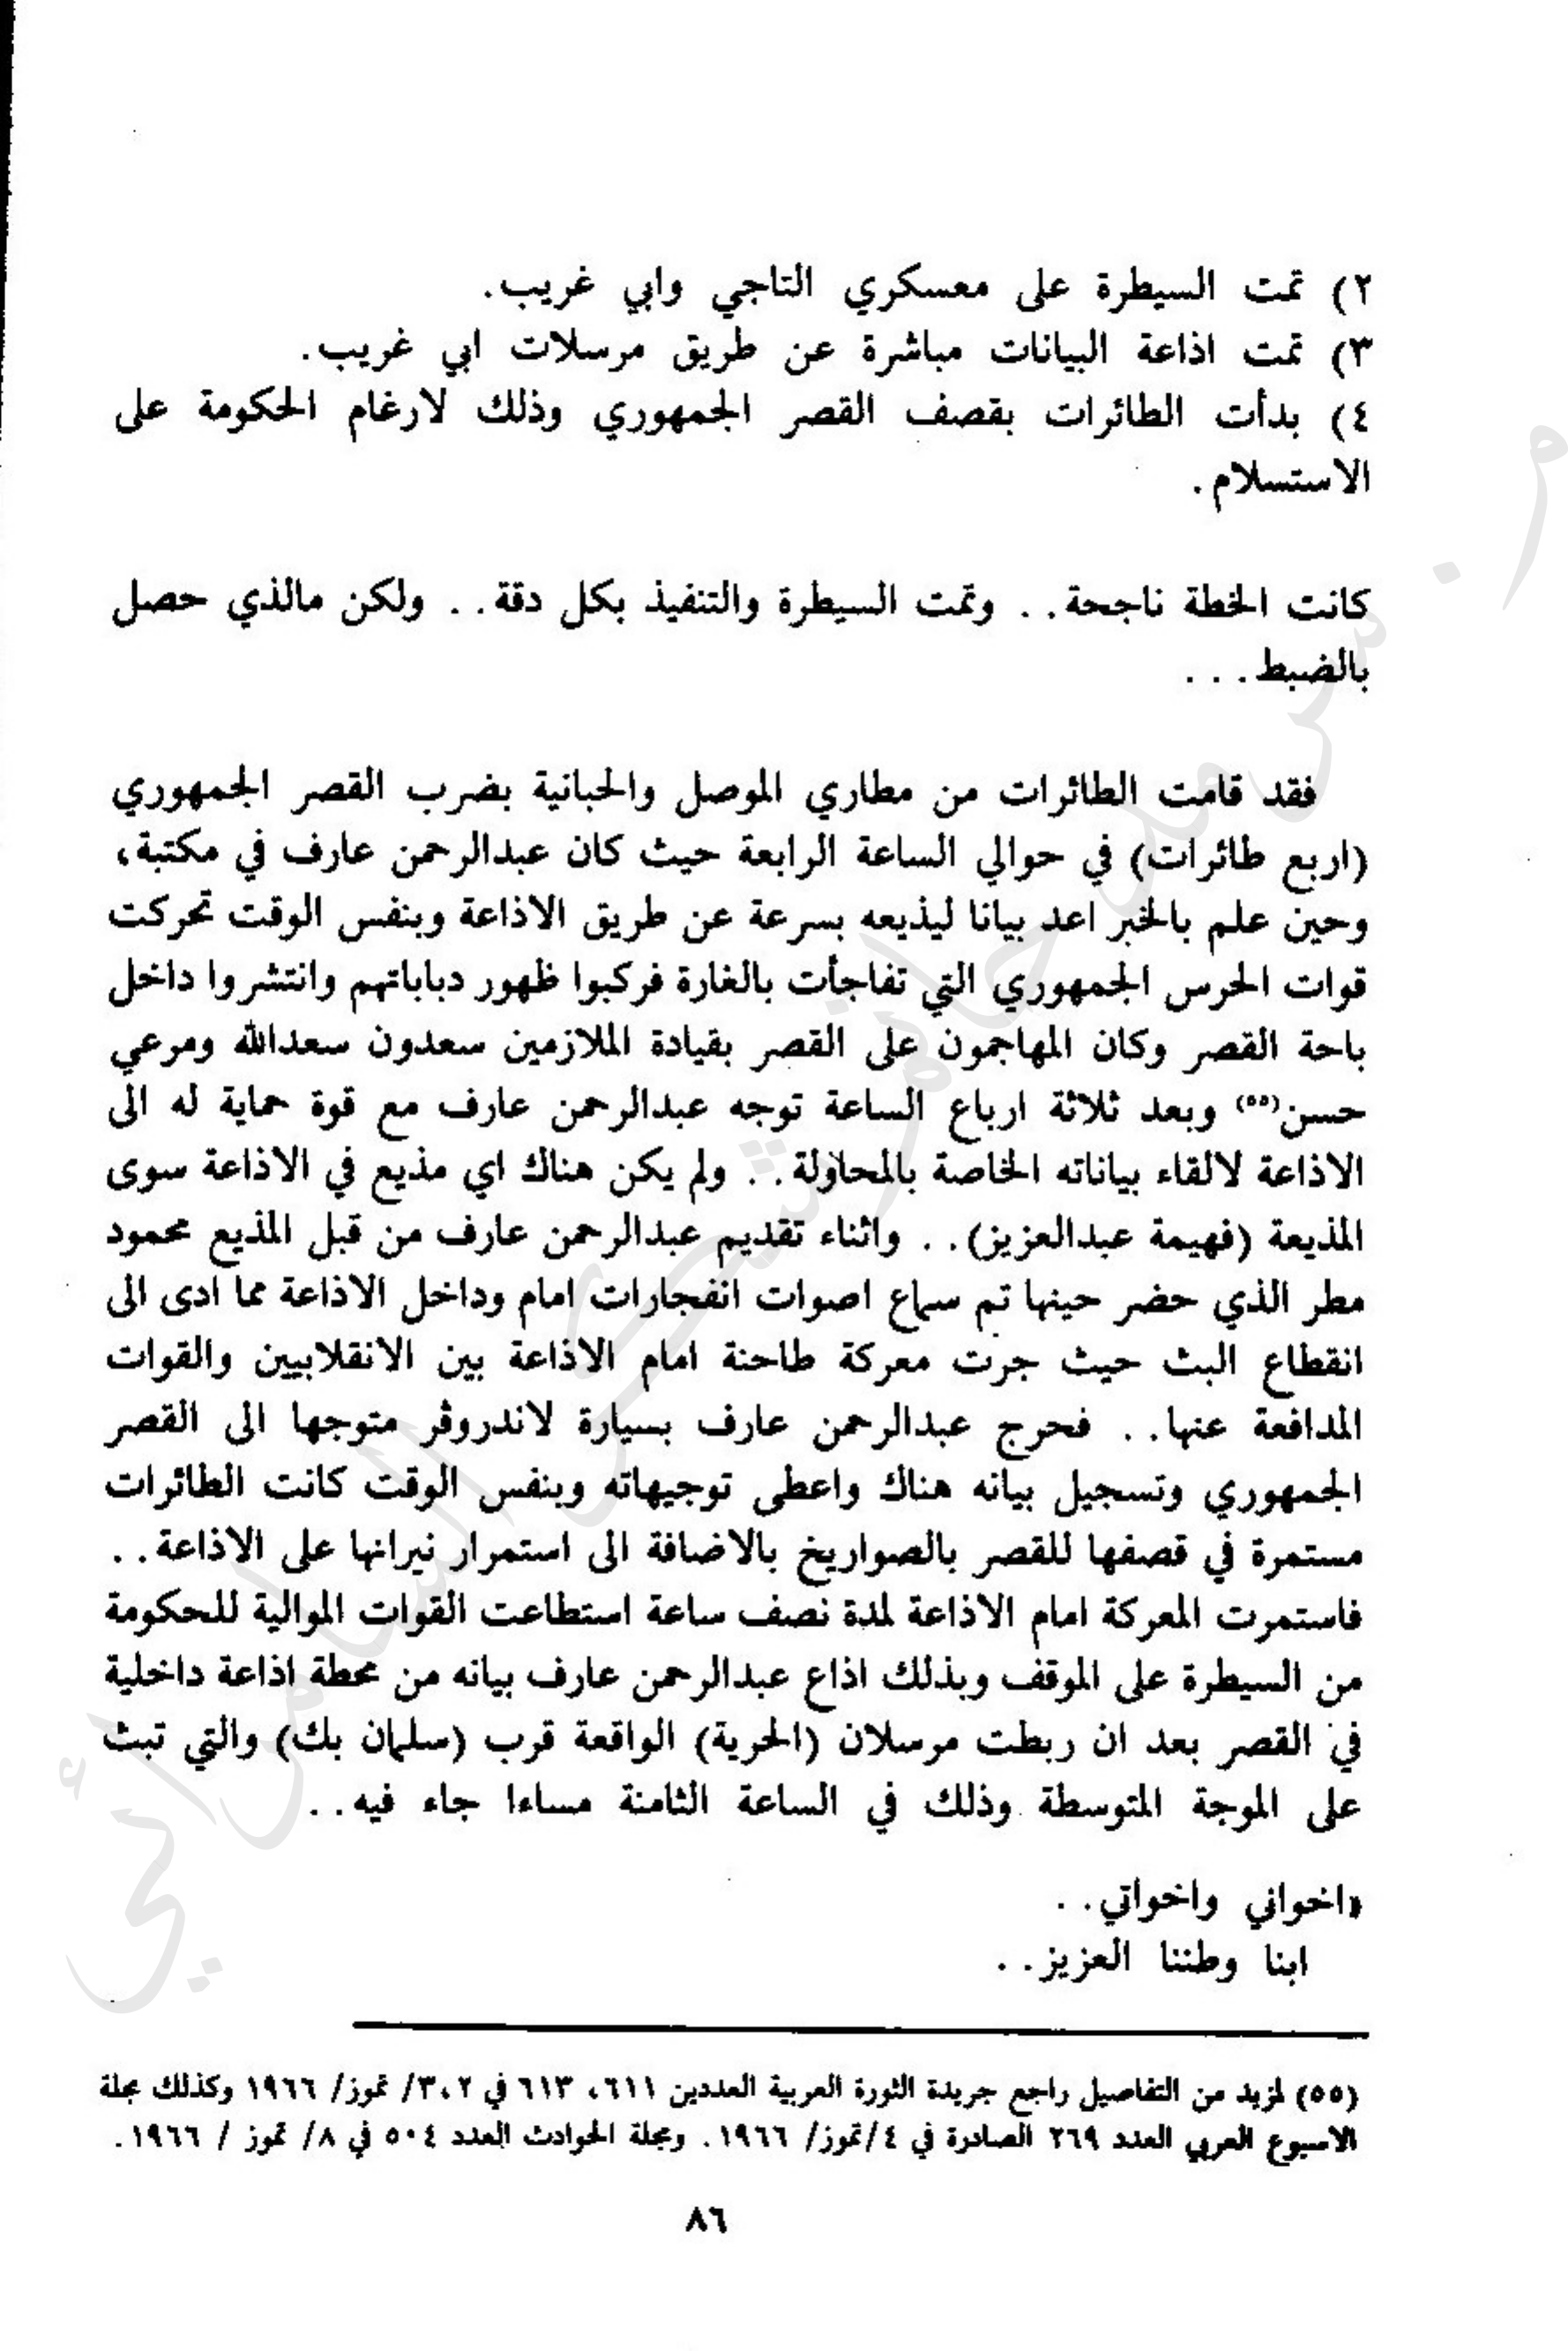 ٢) تمت السيطرة على معسكري التاجي وابي غريب.
٣) تمت اذاعة البيانات مباشرة عن طريق مرسلات ابي غريب.
٤) بدأت الطائرات بقصف القصر الجمهوري وذلك لارغام الحكومة على
الاستسلام.
كانت الخطة ناجحة.. وتمت السيطرة والتنفيذ بكل دقة.. ولكن مالذي حصل
بالضبط...
فقد قامت الطائرات من مطاري الموصل والحبانية بضرب القصر الجمهوري
(اربع طائرات) في حوالي الساعة الرابعة حيث كان عبدالرحمن عارف في مكتبة،
وحين علم بالخبر اعد بيانا ليذيعه بسرعة عن طريق الاذاعة وبنفس الوقت تحركت
قوات الحرس الجمهوري التي تفاجأت بالغارة فركبوا ظهور دباباتهم وانتشروا داخل
باحة القصر وكان المهاجمون على القصر بقيادة الملازمين سعدون سعدالله ومرعي
حسن(٥٥) وبعد ثلاثة ارباع الساعة توجه عبدالرحمن عارف مع قوة حماية له الى
الاذاعة لالقاء بياناته الخاصة بالمحاولة.. ولم يكن هناك اي مذيع في الاذاعة سوى
المذيعة (فهيمة عبدالعزيز).. واثناء تقديم عبدالرحمن عارف من قبل المذيع محمود
مطر الذي حضر حينها تم سماع اصوات انفجارات امام وداخل الاذاعة مما ادى الى
انقطاع البث حيث جرت معركة طاحنة امام الاذاعة بين الانقلابيين والقوات
المدافعة عنها.. فحرج عبدالرحمن عارف بسيارة لاندروڤر متوجها الى القصر
الجمهوري وتسجيل بيانه هناك واعطى توجيهاته وبنفس الوقت كانت الطائرات
مستمرة في قصفها للقصر بالصواريخ بالاضافة الى استمرار نيرانها على الاذاعة..
فاستمرت المعركة امام الاذاعة لمدة نصف ساعة استطاعت القوات الموالية للحكومة
من السيطرة على الموقف وبذلك اذاع عبدالرحمن عارف بيانه من محطة اذاعة داخلية
في القصر بعد ان ربطت مرسلان (الحرية) الواقعة قرب (سلمان بك) والتي تبث
على الموجة المتوسطة وذلك في الساعة الثامنة مساءا جاء فيه..
«اخواني واخواتي..
ابنا وطننا العزيز..
(٥٥) لمزيد من التفاصيل راجع جريدة الثورة العربية العددين ٦١١، ٦١٣ في ٣،٢/ تموز/ ١٩٦٦ وكذلك مجلة
الاسبوع العربي العدد ٢٦٩ الصادرة في ٤/تموز/ ١٩٦٦. ومجلة الحوادث العدد ٥٠٤ في ٨/ تموز / ١٩٦٦.
٨٦
م. سرمد حاتم شكر السامرائي